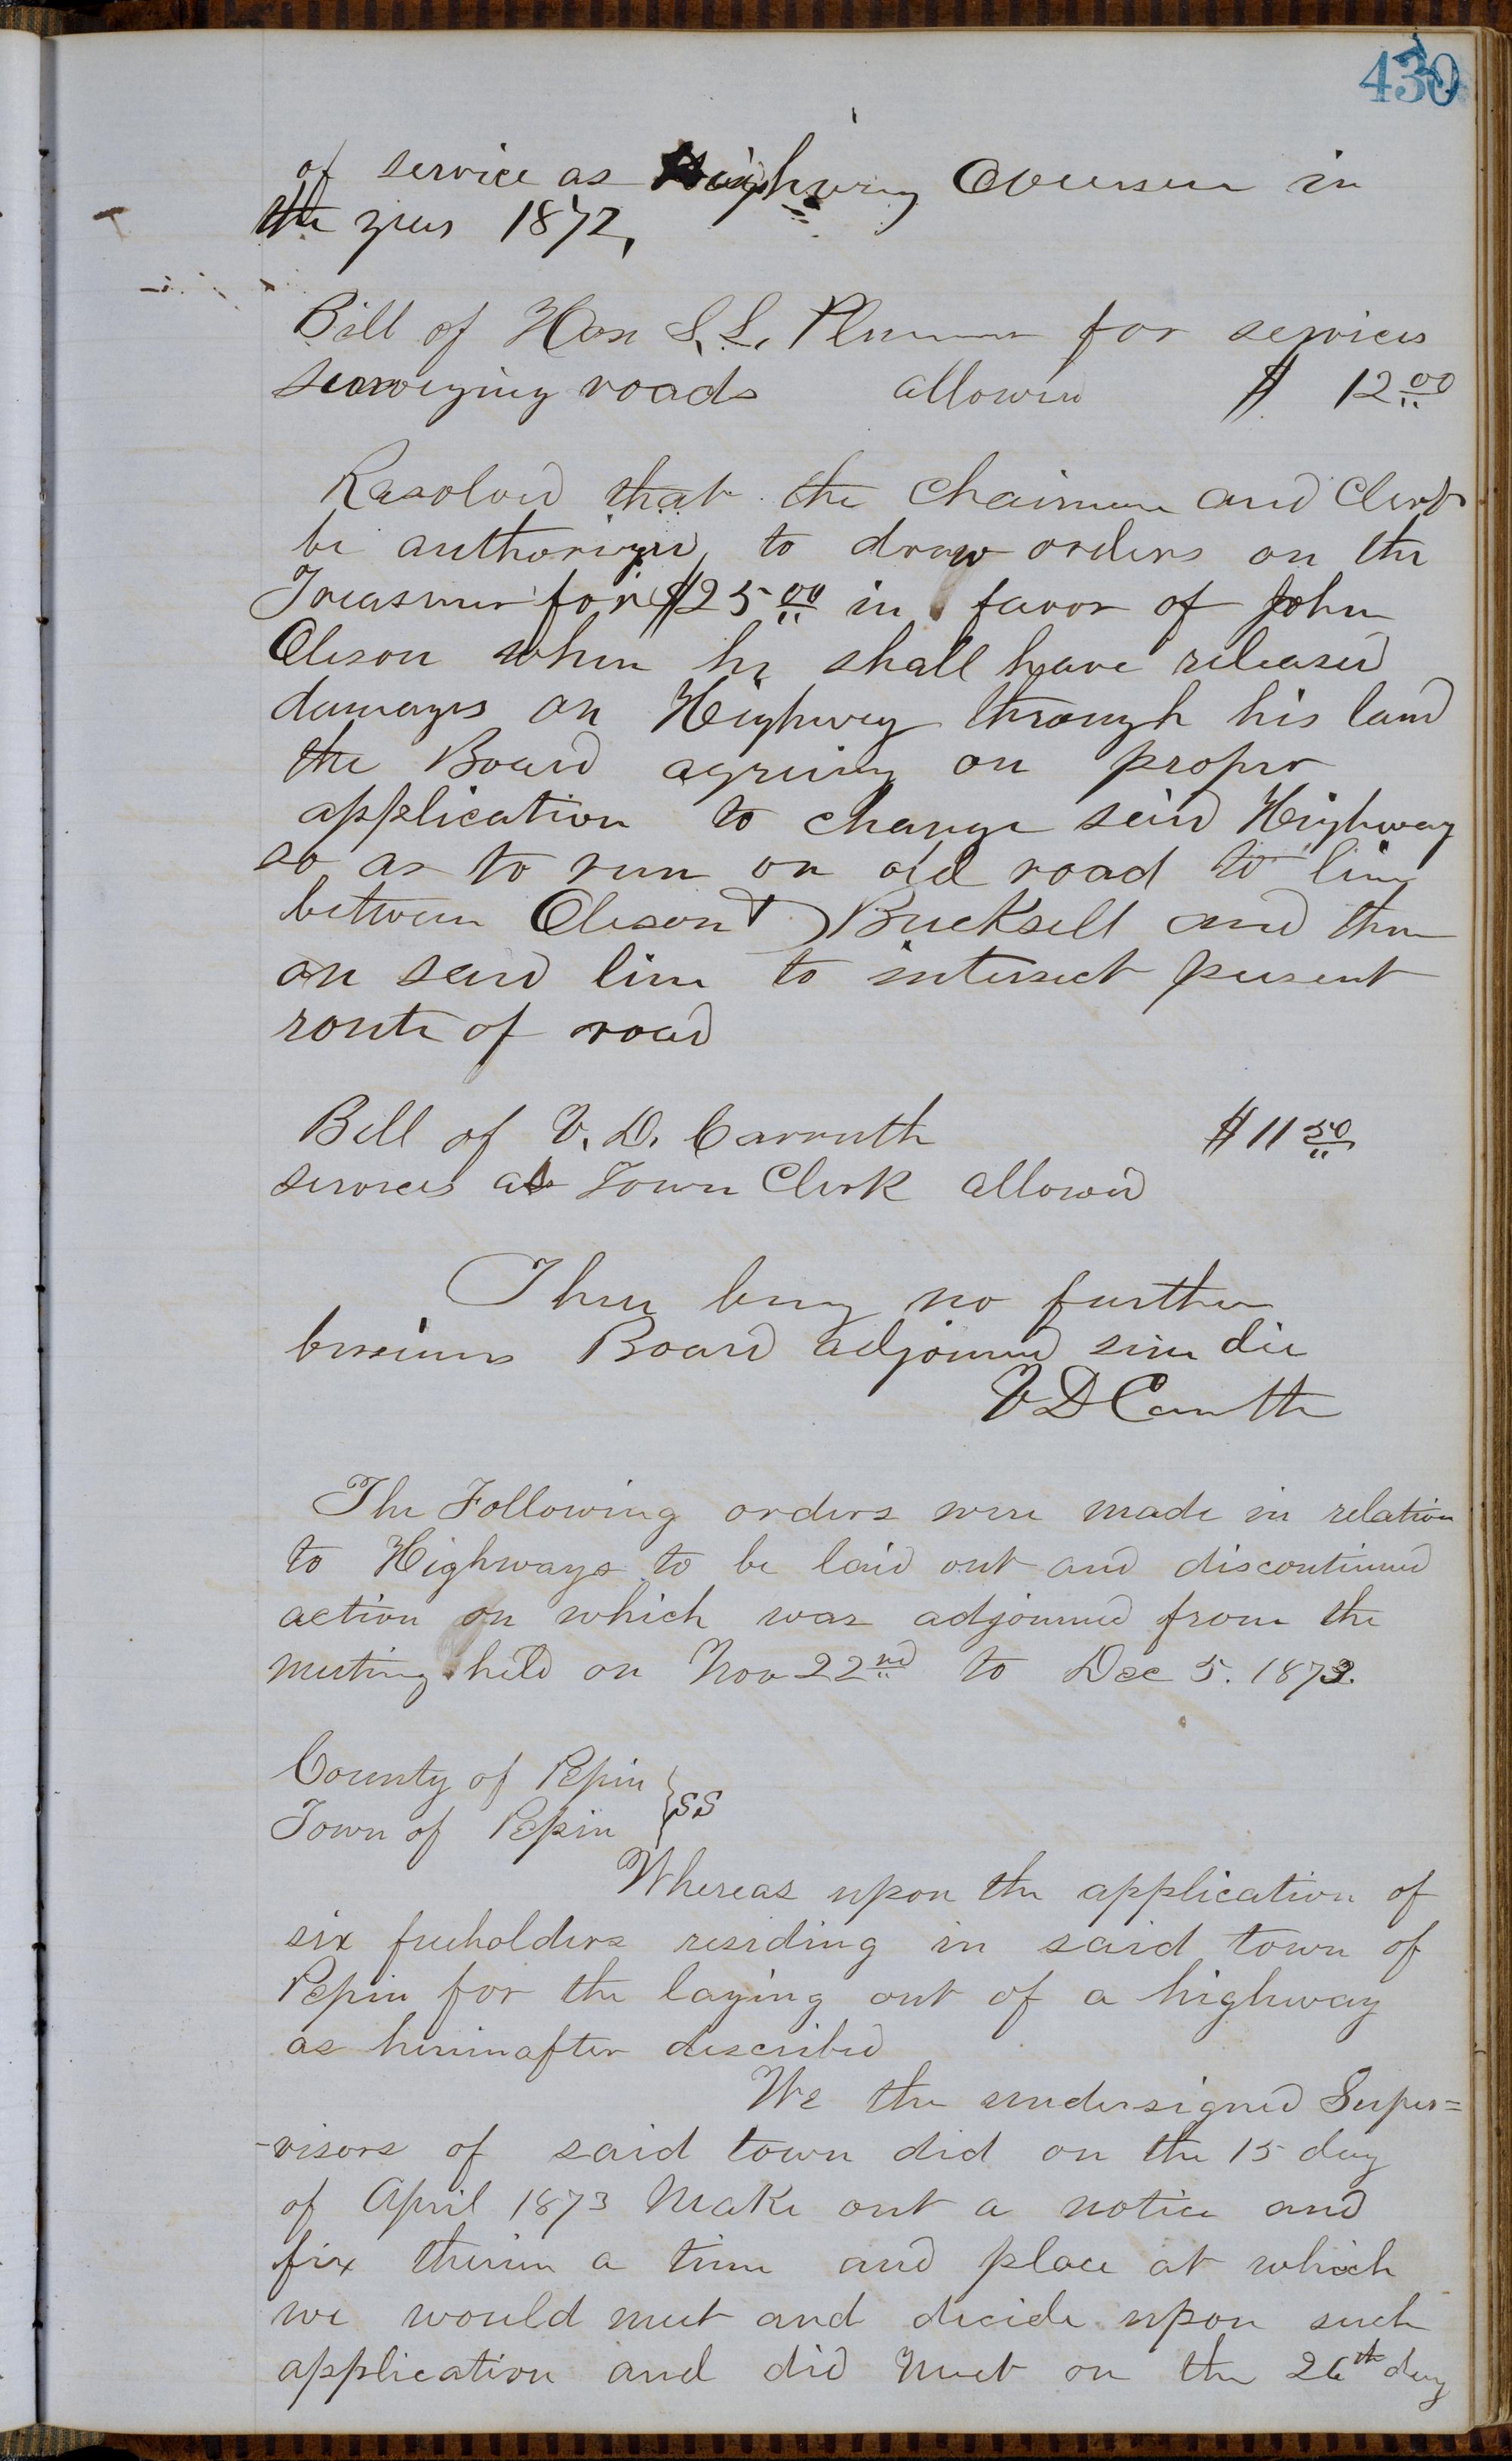 430
of service as Highway Overseer in
the year 1872,
Bill of Hon S. L. Plummer for services
surveying roads allowed $ 12 00
Resolved that the Chairman and Clerk
be authorized to draw orders on the
Treasurer for $25 00 in favor of John
Oleson when he shall have released
damages on Highway through his land
the Board agreeing on proper
application to change said Highway
so as to run on old road to line
between Oleson & Bucksell and then
on said line to intersect present
route of road
Bill of V. D. Carruth $ 11 50
services as Town Clerk allowed
There being no further
business Board adjourned sine die
V D Carruth
The Following orders were made in relation
to Highways to be laid out and discontinued
action on which was adjourned from the
meeting held on Nov 22nd to Dec 5. 1873.
County of Pepin } SS
Town of Pepin
Whereas upon the application of
six freeholders residing in said town of
Pepin for the laying out of a highway
as hereinafter described
We the undersigned Super=
-visors of said town did on the 15 day
of April 1873 Make out a notice and
fix therein a time and place at which
we would meet and decide upon such
application and did Meet on the 26th day